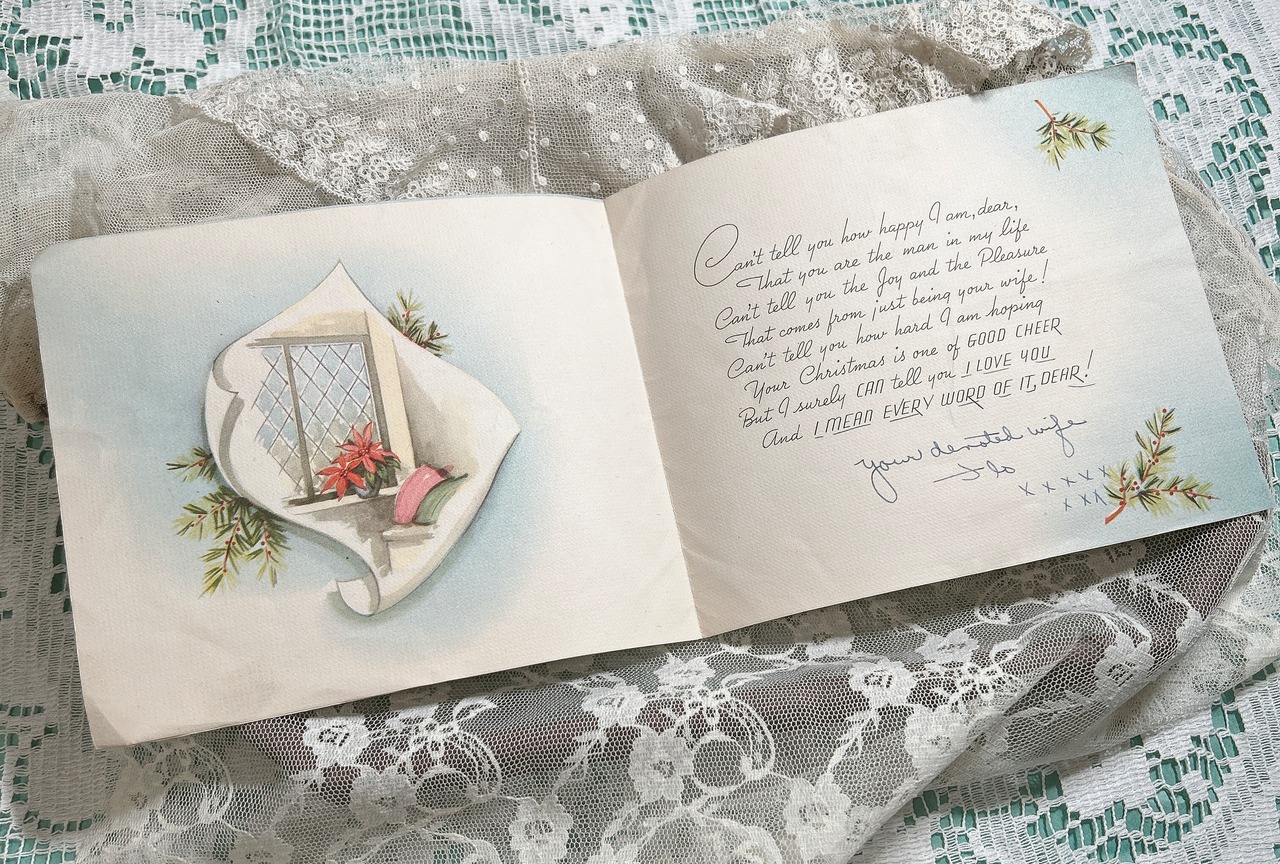 Can't tell you how happy I am, dear,
That you are the man in my life
Can't tell you the Joy and the Pleasure
That comes from just being your wife!
Can't tell you how hard I am hoping
Your Christmas is one of GOOD CHEER
But I surely CAN tell you I LOVE YOU
And I MEAN EVERY WORD OF IT, DEAR!
your devoted wife
Flo
x x x x x
x x x x